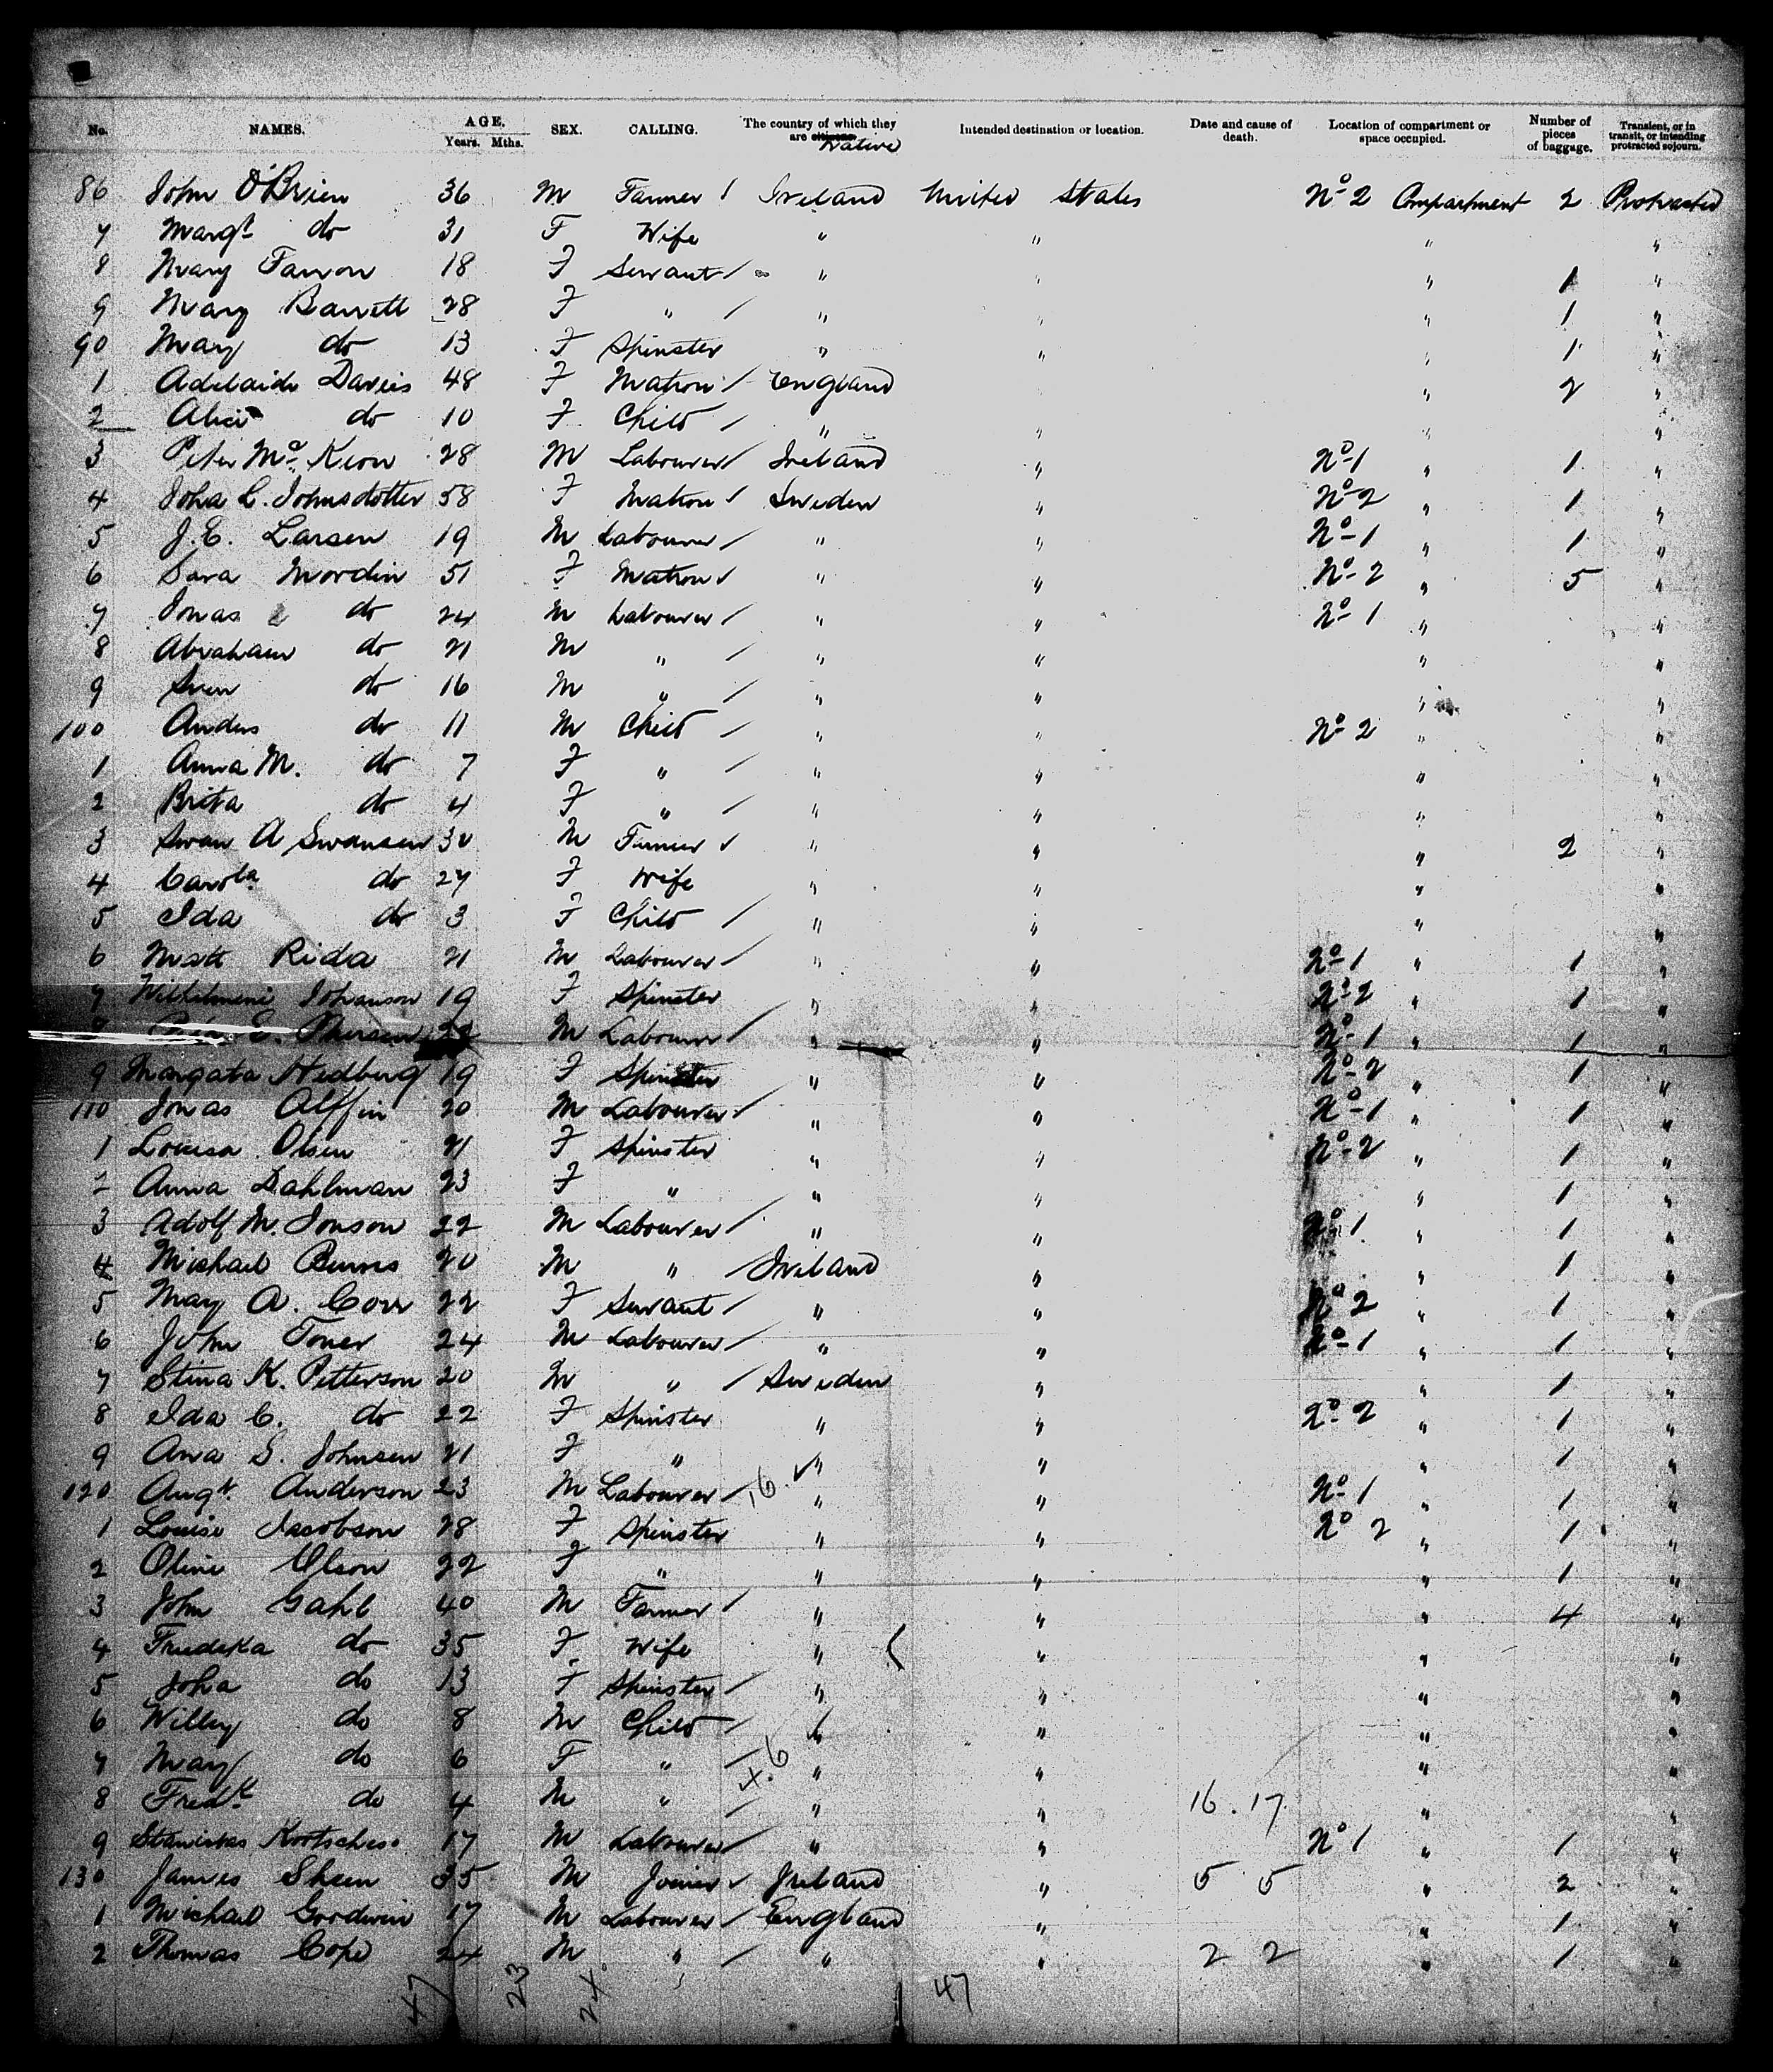 No. NAMES. AGE. Years. Mths. SEX. CALLING. The country of which they are citizens Native Intended destination or location. Date and cause of death. Location of compartment or space occupied. Number of pieces of baggage. Transient, or in transit, or intending protracted sojourn.
86 John O'Brien 36 M Farmer / Ireland United States No 2 Compartment 2 Protracted
7 Margt do 31 F Wife " " " "
8 Mary Farron 18 F Servant / " " " 1 "
9 Mary Barrett 28 F " / " " " 1 "
90 Mary do 13 F Spinster " " " 1 "
1 Adelaide Davies 48 F Matron / England " 2 "
2 Alice do 10 F Child / " " " "
3 Peter McKeon 28 M Labourer / Ireland " No 1 " 1 "
4 Joha C. Johnsdotter 58 F Matron / Sweden " No 2 " 1 "
5 J.E. Larsen 19 M Labourer / " " No 1 " 1 "
6 Sara Mordin 51 F Matron / " " No 2 " 5 "
7 Jonas do 24 M Labourer / " " No 1 " "
8 Abraham do 21 M " / " " " "
9 Sven do 16 M " / " " " "
100 Anders do 11 M Child / " " No 2 " "
1 Anna M. do 7 F " / " " " "
2 Brita do 4 F " / " " " "
3 Swan A Swansen 30 M Farmer / " " " 2 "
4 Carola do 27 F Wife " " " "
5 Ida do 3 F Child / " " " "
6 Matt Rida 21 M Labourer / " " No 1 " 1 "
7 Wilhelmeni Johanson 19 F Spinster " " No 2 " 1 "
8 E. 22 M Labourer / " " No 1 " 1 "
9 Margata Hedberg 19 F Spinster " " No 2 " 1 "
110 Jonas Alffin 20 M Labourer / " " No 1 " 1 "
1 Louisa Olsen 21 F Spinster " " No 2 " 1 "
2 Anna Dahlman 23 F " " " " 1 "
3 Adolf M. Jonson 22 M Labourer / " " No 1 " 1 "
4 Michael Burns 20 M " / Ireland " " 1 "
5 May A. Corr 22 F Servant / " " No 2 " 1 "
6 John Toner 24 M Labourer / " " No 1 " 1 "
7 Stina K. Petterson 20 M " / Sweden " " 1 "
8 Ida C. do 22 F Spinster " " No 2 " 1 "
9 Ana S. Johnsen 21 F " " " " 1 "
120 Augt. Anderson 23 M Labourer / 16. " " No 1 " 1 "
1 Louise Jacobson 28 F Spinster " " No 2 " 1 "
2 Oline Olson 22 F " " " " 1 "
3 John Gahl 40 M Farmer / " " " 4 "
4 Fredeka do 35 F Wife " " " "
5 Joha do 13 F Spinster / " " " "
6 Willy do 8 M Child / " " " "
7 Mary do 6 F " / 4.6 " " " "
8 Fredk do 4 M " / " " 16.17. " "
9 Stanislas 17 M Labourer / " " No 1 " 1 "
130 James Sheen 35 M Joiner / Ireland " 5 5 " 2 "
1 Michael Goodwin 17 M Labourer / England " " 1 "
2 Thomas Cope 24 M " / " " 2 2 " 1 "
47 23 24 47